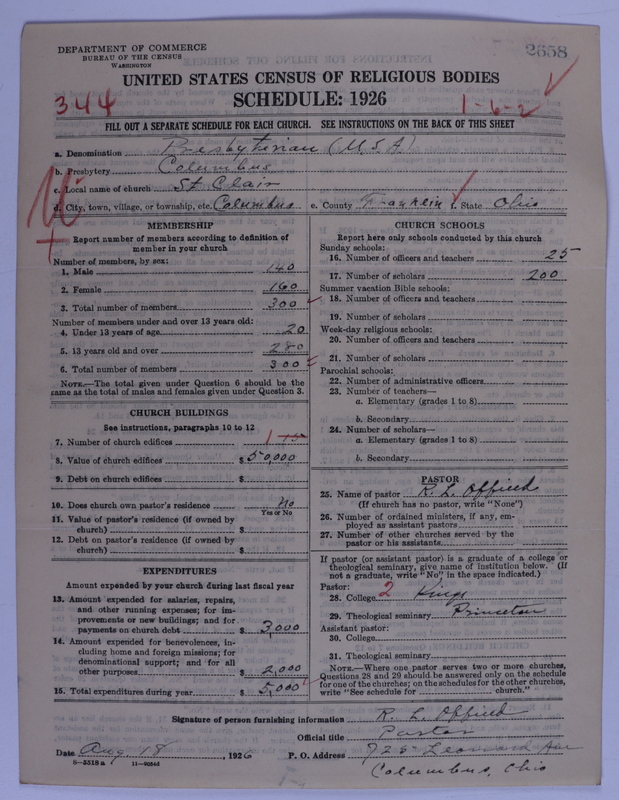 DEPARTMENT OF COMMERCE
BUREAU OF THE CENSUS
WASHINGTON
2658
UNITED STATES CENSUS OF RELIGIOUS BODIES
SCHEDULE: 1926
344
1-6-2
FILL OUT A SEPARATE SCHEDULE FOR EACH CHURCH. SEE INSTRUCTIONS ON THE BACK OF THIS SHEET
a. Denomination Presbyterian (U.S.A)
b. Presbytery Columbus
c. Local name of church St Clair
d. City, town, village, or township, etc. Columbus e. County Franklin f. State Ohio
MEMBERSHIP
Report number of members according to definition of
member in your church
Number of members, by sex:
1. Male 140
2. Female 160
3. Total number of members 300
Number of members under and over 13 years old:
4. Under 13 years of age 20
5. 13 years old and over 280
6. Total number of members 300
NOTE.—The total given under Question 6 should be the
same as the total of males and females given under Question 3.
CHURCH BUILDINGS
See instructions, paragraphs 10 to 12
7. Number of church edifices 1
8. Value of church edifices $50,000
9. Debt on church edifices $
10. Does church own pastor's residence No
Yes or No
11. Value of pastor's residence (if owned by
church) $
12. Debt on pastor's residence (if owned by
church) $
EXPENDITURES
Amount expended by your church during last fiscal year
13. Amount expended for salaries, repairs,
and other running expenses; for im-
provements or new buildings; and for
payments on church debt $3,000
14. Amount expended for benevolences, in-
cluding home and foreign missions; for
denominational support; and for all
other purposes $2,000
15. Total expenditures during year $5,000
CHURCH SCHOOLS
Report here only schools conducted by this church
Sunday schools:
16. Number of officers and teachers 25
17. Number of scholars 200
Summer vacation Bible schools:
18. Number of officers and teachers
19. Number of scholars
Week-day religious schools:
20. Number of officers and teachers
21. Number of scholars
Parochial schools:
22. Number of administrative officers
23. Number of teachers—
a. Elementary (grades 1 to 8)
b. Secondary
24. Number of scholars—
a. Elementary (grades 1 to 8)
b. Secondary
PASTOR
25. Name of pastor R. L. Offield
(If church has no pastor, write "None")
26. Number of ordained ministers, if any, em-
ployed as assistant pastors
27. Number of other churches served by the
pastor or his assistants
If pastor (or assistant pastor) is a graduate of a college or
theological seminary, give name of institution below. (If
not a graduate, write "No" in the space indicated.)
Pastor:
28. College 2 Kings
29. Theological seminary Princeton
Assistant pastor:
30. College
31. Theological seminary
NOTE.—Where one pastor serves two or more churches,
Questions 28 and 29 should be answered only on the schedule
for one of the churches; on the schedules for the other churches,
write "See schedule for church."
Signature of person furnishing information R. L. Offield
Official title Pastor
Date Aug 18, 1926 P. O. Address 725 Leonard Ave
8—5518 a
Columbus, Ohio